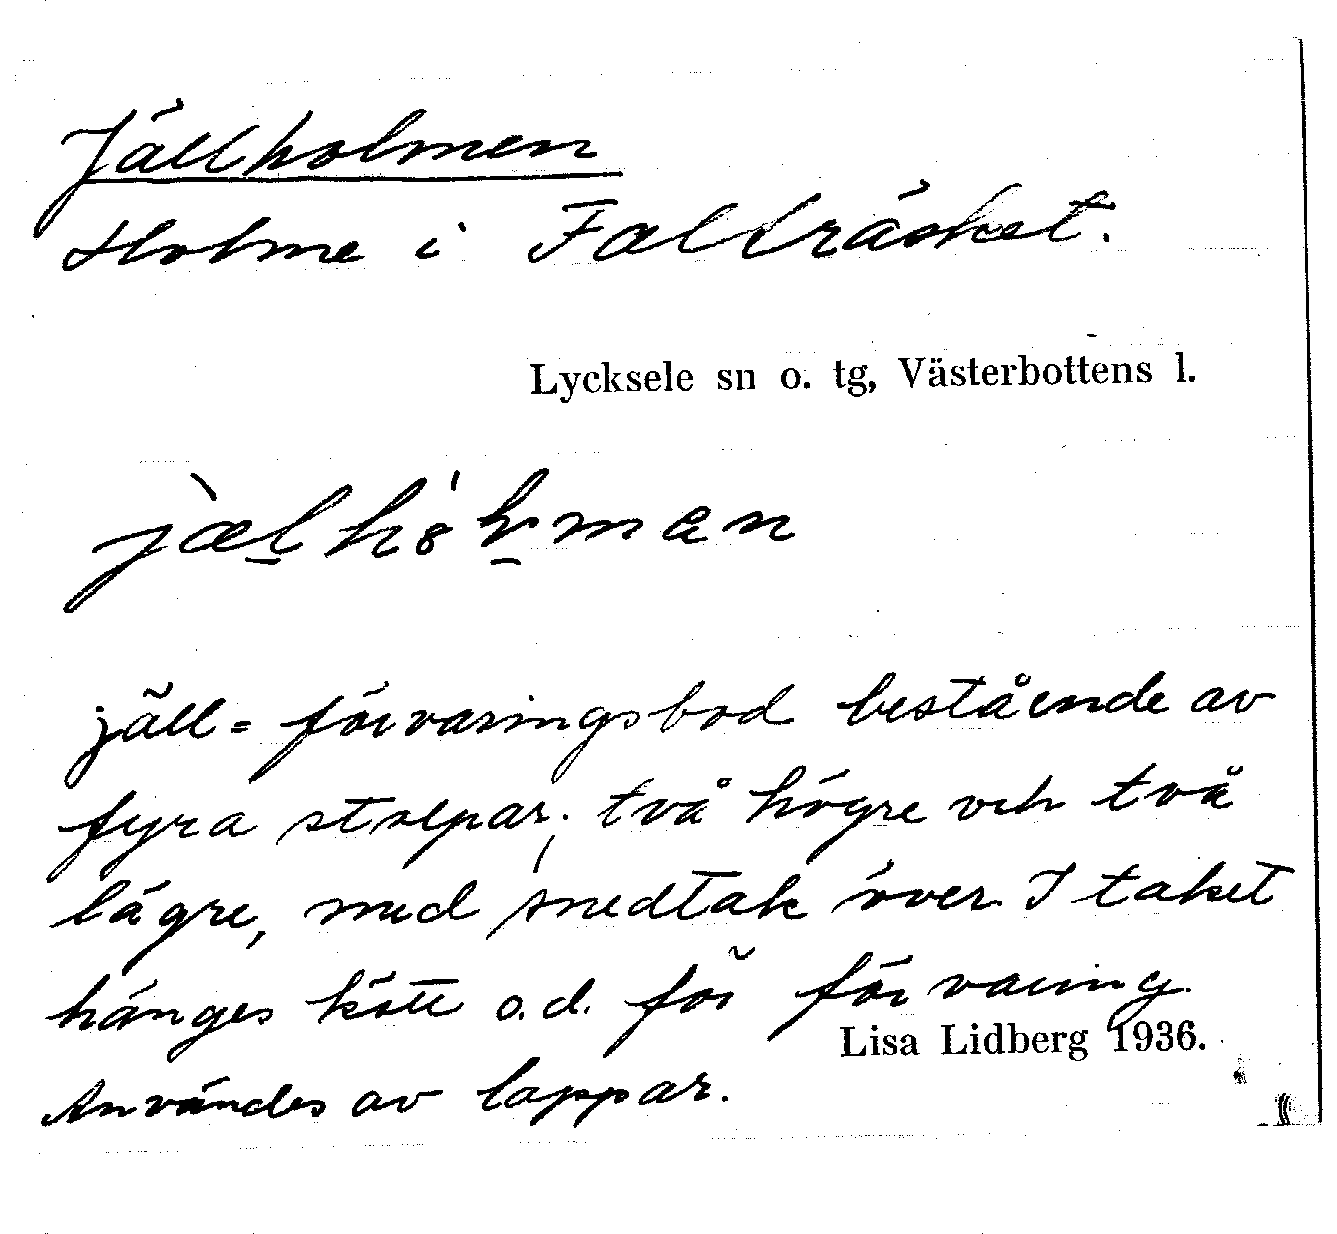 Jällholmen
Holme i Falträsket.
Lycksele sn o. tg, Västerbottens l.
jäll = förvaringsbod bestående av
fyra stolpar; två högre och två
lägre, med snedtak över. I taket
hänges kött o.d. för förvaring.
Lisa Lidberg 1936.
Användes av lappar.